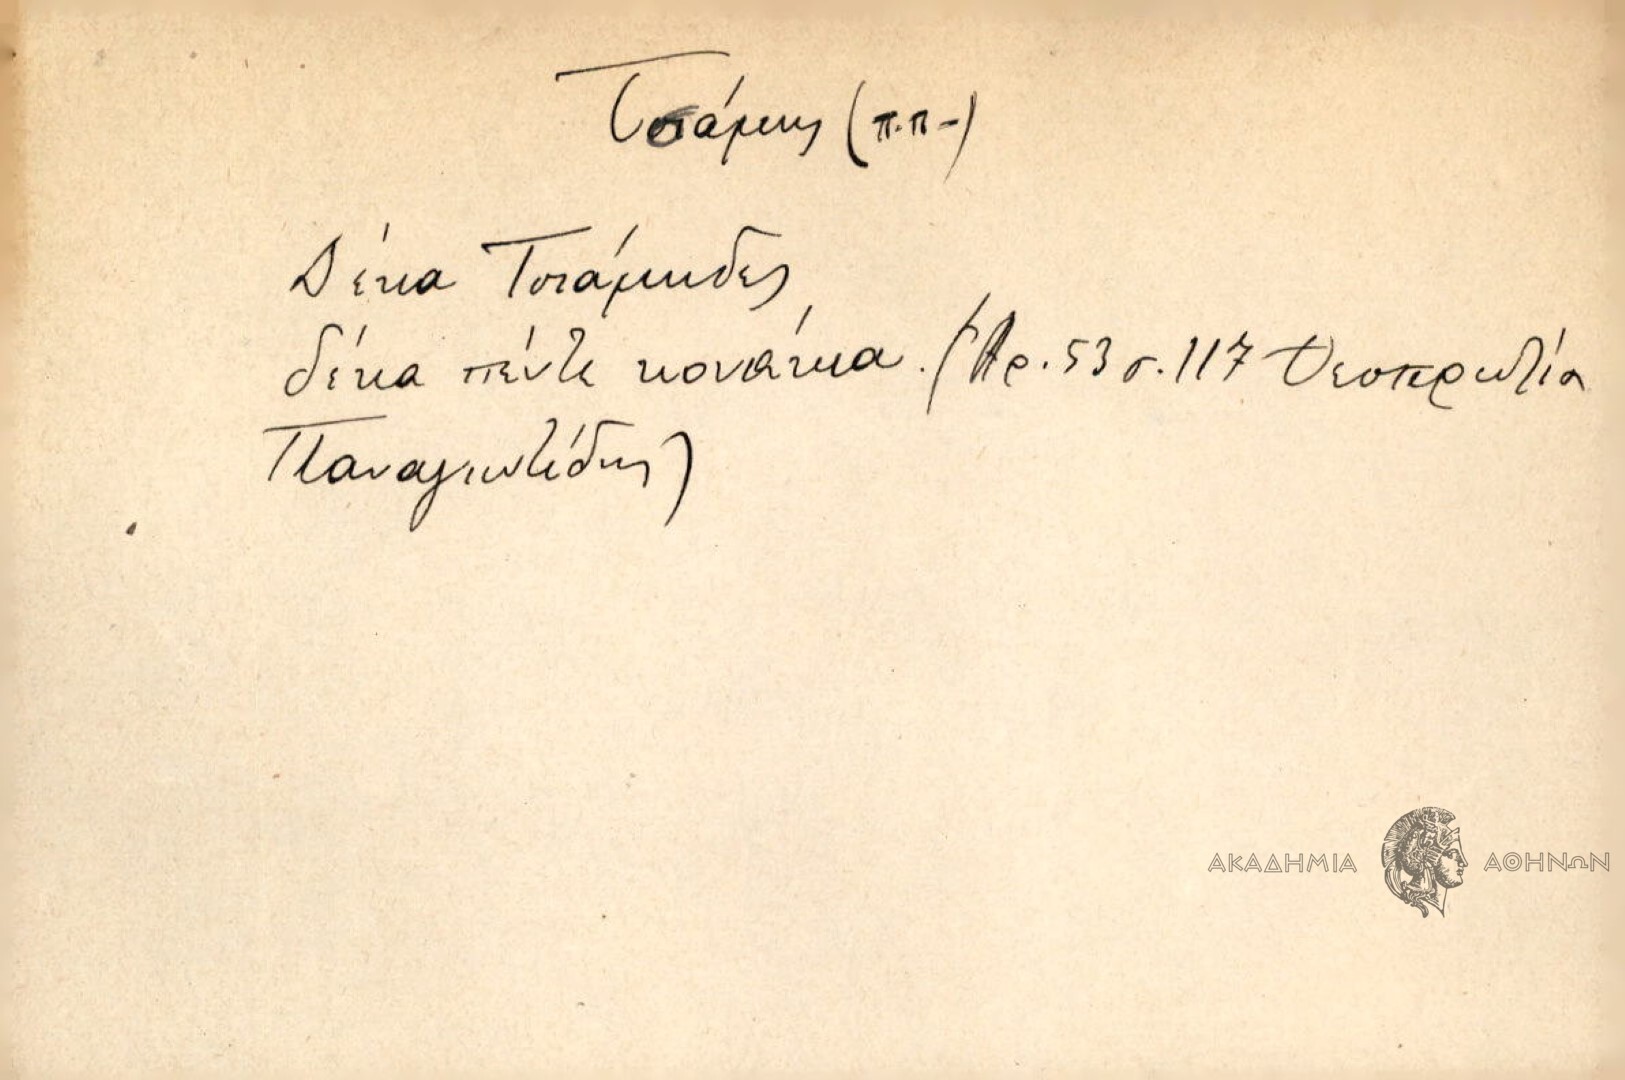 Τσάμης (π.π-)
Δέκα Τσάμηδες
δέκα πέντε κονάκια. (Αρ. 53 σ. 117 Θεσπρωτία
Παναγιωτίδης)
ΑΚΑΔΗΜΙΑ ΑΘΗΝΩΝ